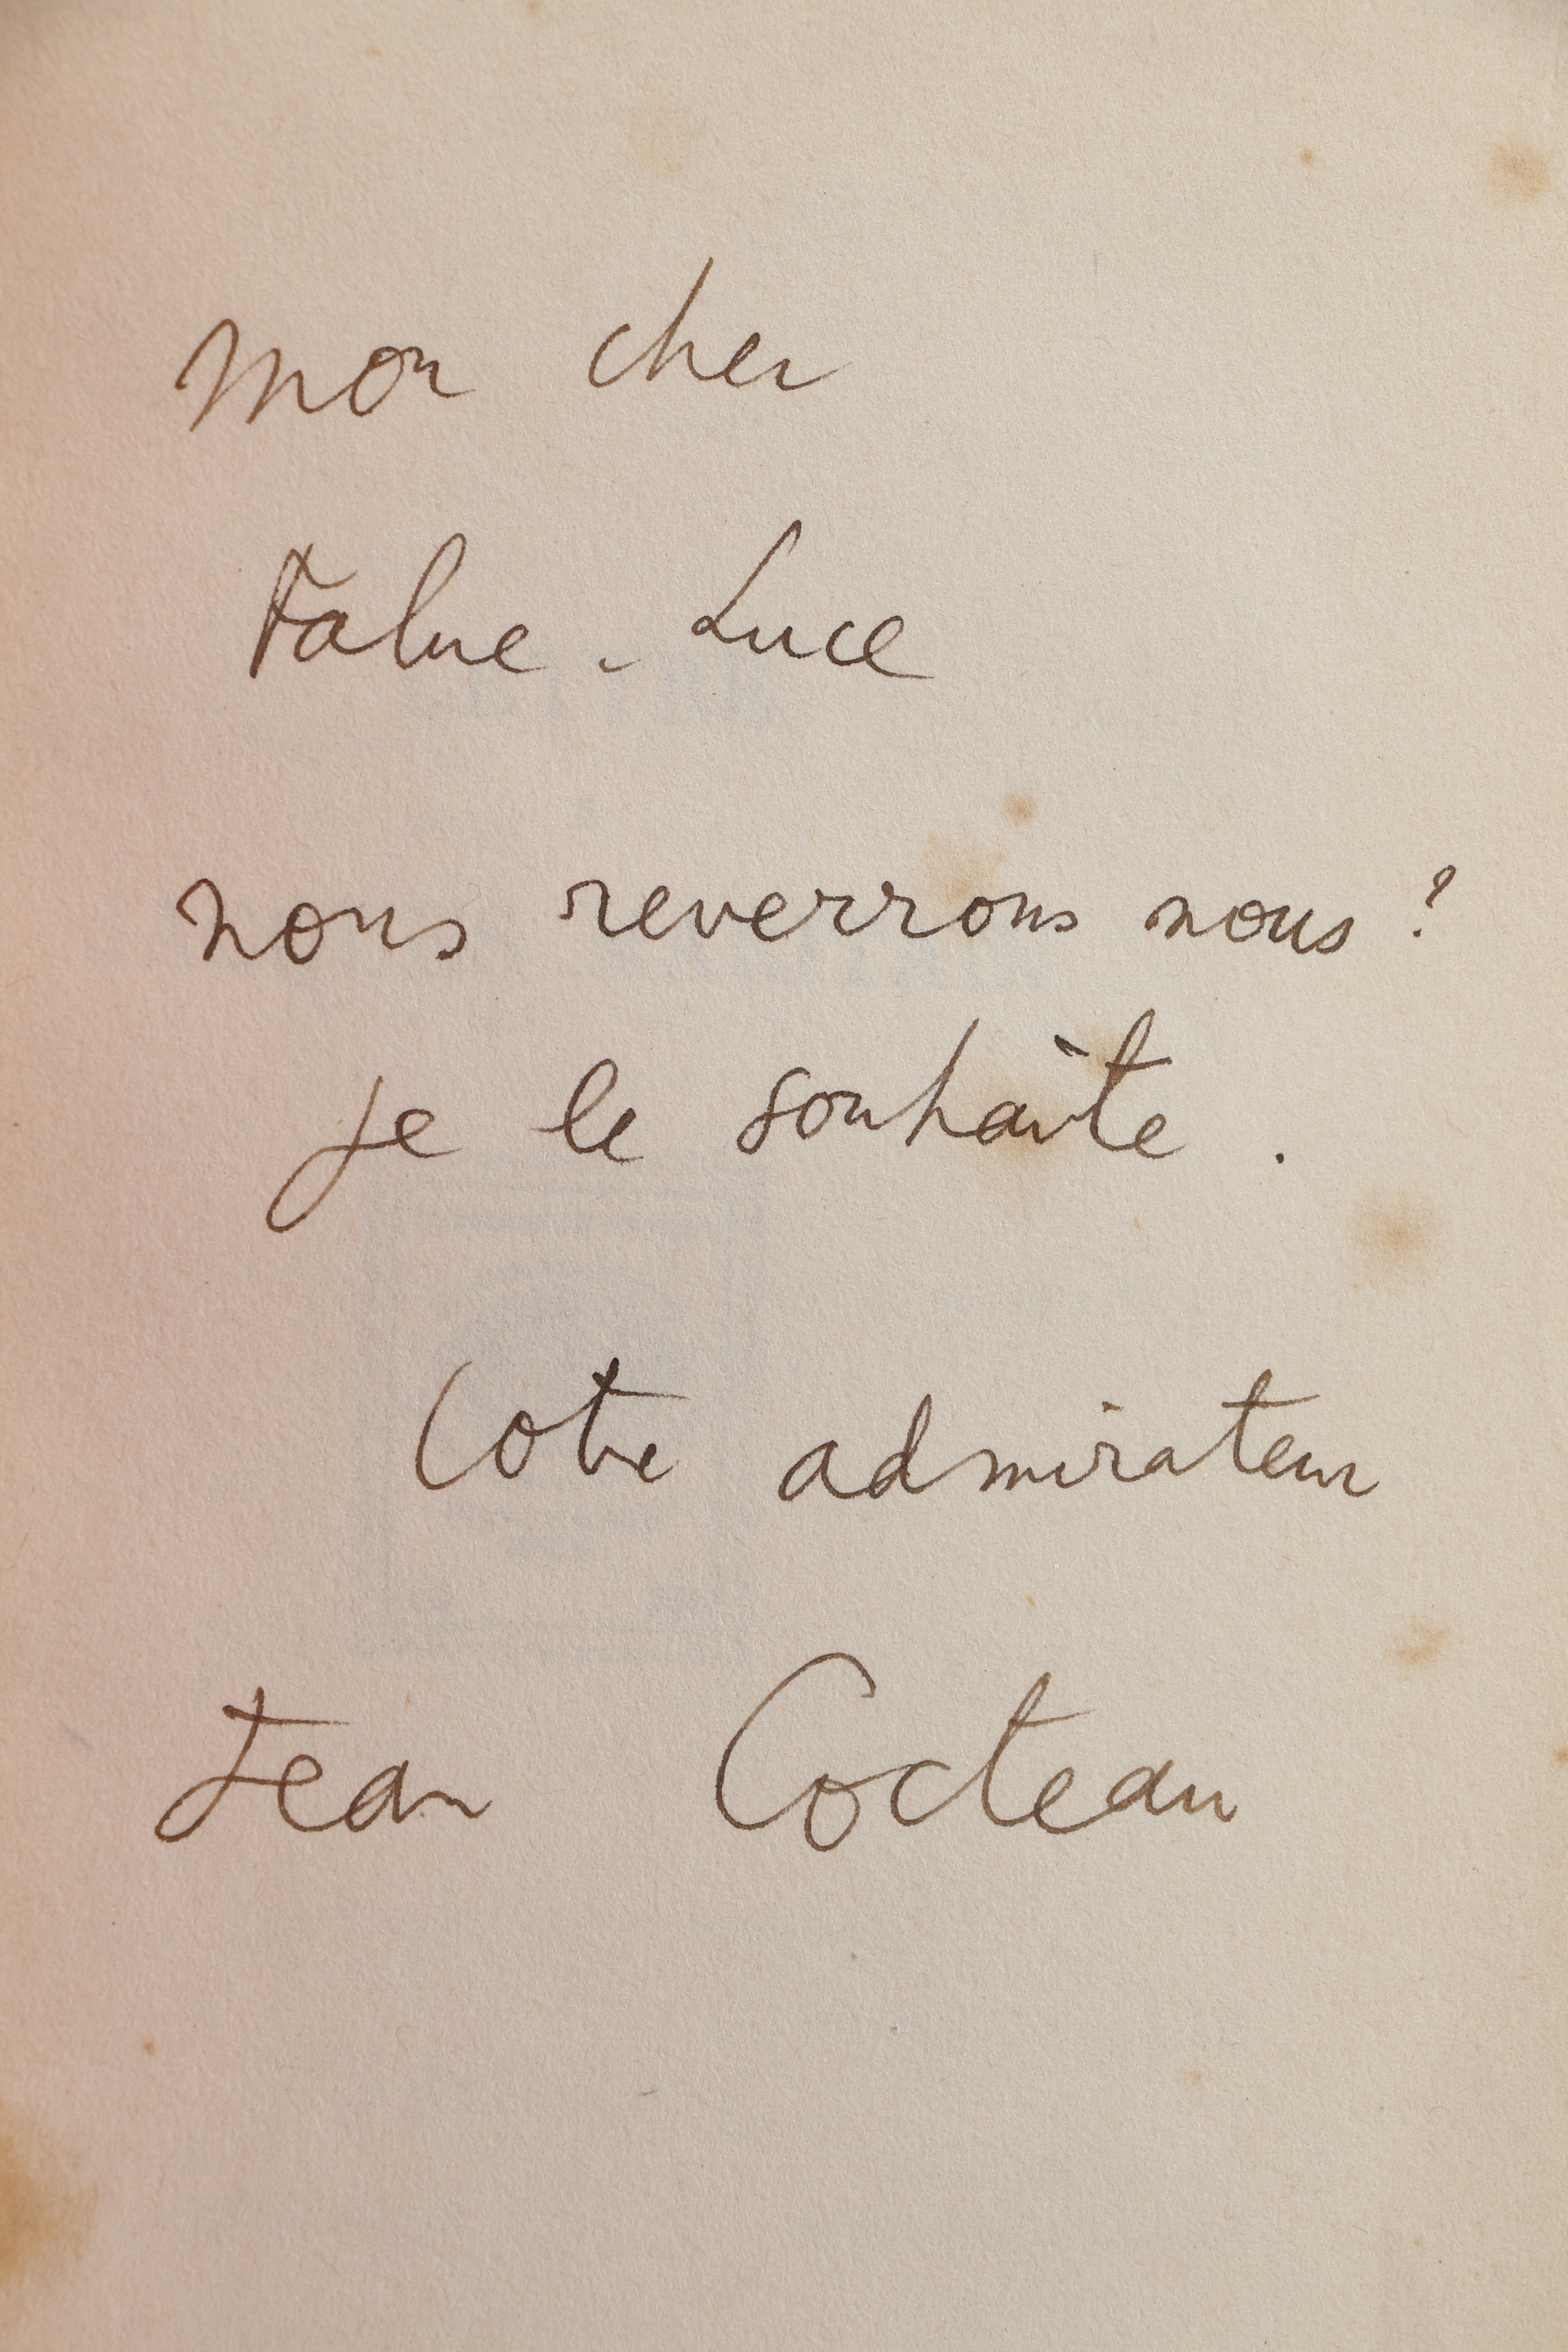 mon cher
Fabre-Luce
nous reverrons nous ?
je le souhaîte .
Votre admirateur
Jean Cocteau